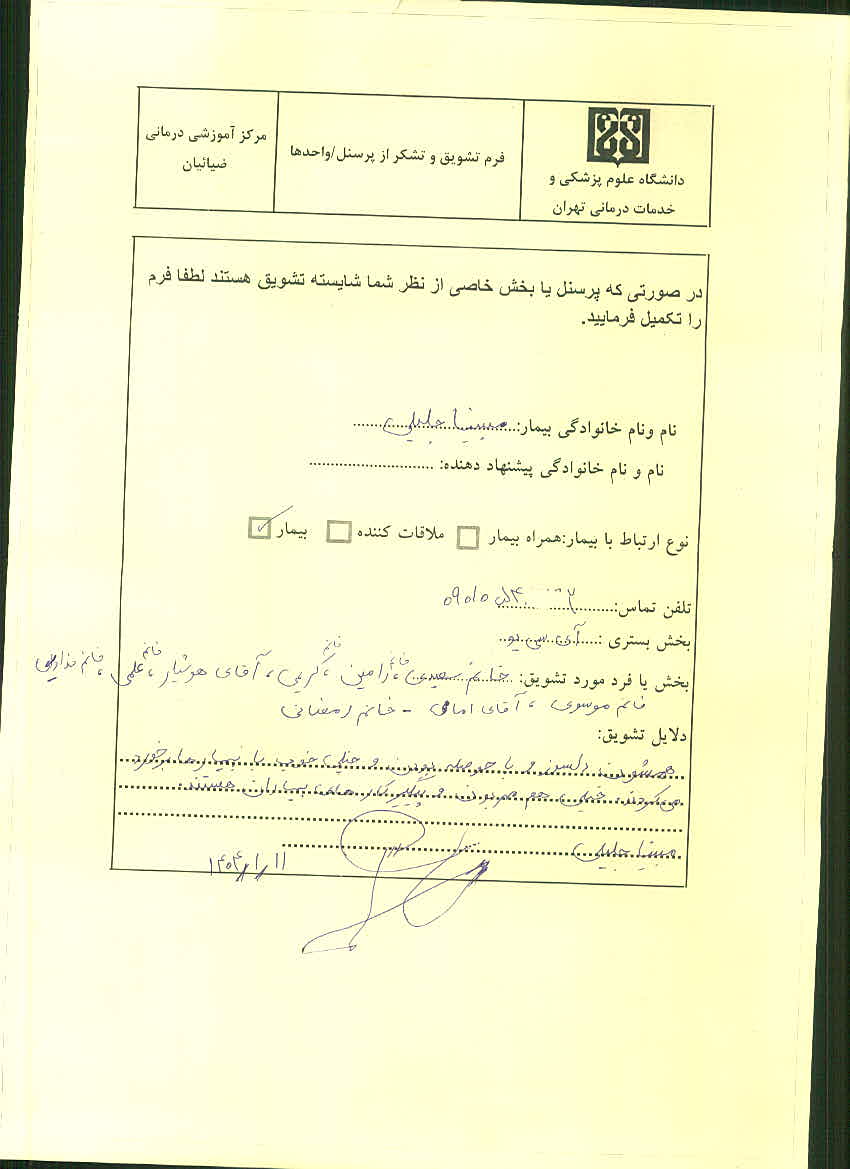 دانشگاه علوم پزشکی و
خدمات درمانی تهران
فرم تشویق و تشکر از پرسنل/واحدها
مرکز آموزشی درمانی
ضیائیان
در صورتی که پرسنل یا بخش خاصی از نظر شما شایسته تشویق هستند لطفا فرم
را تکمیل فرمایید.
نام ونام خانوادگی بیمار: مبینا جلیلی
نام و نام خانوادگی پیشنهاد دهنده:
نوع ارتباط با بیمار:همراه بیمار ملاقات کننده بیمار
تلفن تماس:
بخش بستری : آی سی یو
بخش یا فرد مورد تشویق: خانم سعیدی، خانم رامین، خانم کریمی، آقای هوشیار، خانم علمی، خانم
خانم موسوی ، آقای امامی - خانم رمضانی
دلایل تشویق:
همشون دلسوز و با حوصله بودن و خیلی خوب با بیمارها برخورد
می‌کردند. خیلی هم مهربون و پیگیر کارهای بیماران هستند.
مبینا جلیلی
۱۴۰۴/۱/۱۱